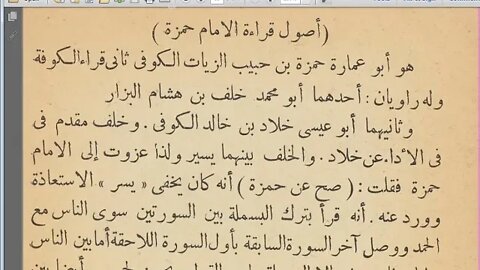 (أصول قراءة الامام حمزة)
هو أبو عمارة حمزة بن حبيب الزيات الكوفى ثانى قراء الكوفة
وله راويان : أحدهما أبو محمد خلف بن هشام البزار
وثانيهما أبو عيسى خلاد بن خالد الكوفى . وخلف مقدم فى
فى الأداء عن خلاد . والخلف بينهما يسير ولذا عزوت إلى الامام
حمزة فقلت : (صح عن حمزة) أنه كان يخفى « يسر » الاستعاذة
وورد عنه . أنه قرأ بترك البسملة بين السورتين سوى الناس مع
الحمد ووصل آخر السورة السابقة بأول السورة اللاحقة أما بين الناس